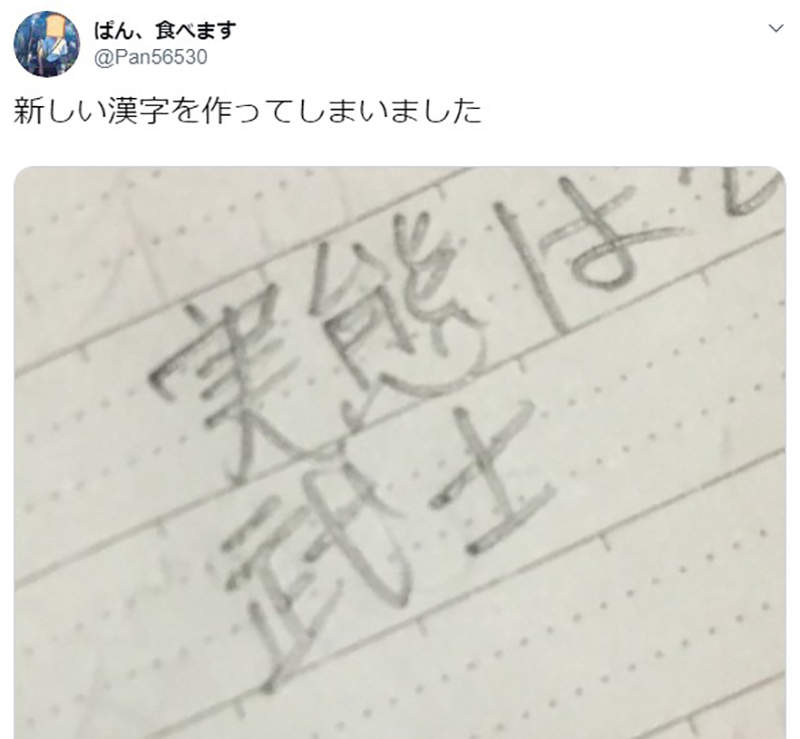 ぱん、食べます
@Pan56530
新しい漢字を作ってしまいました
実態は
武士